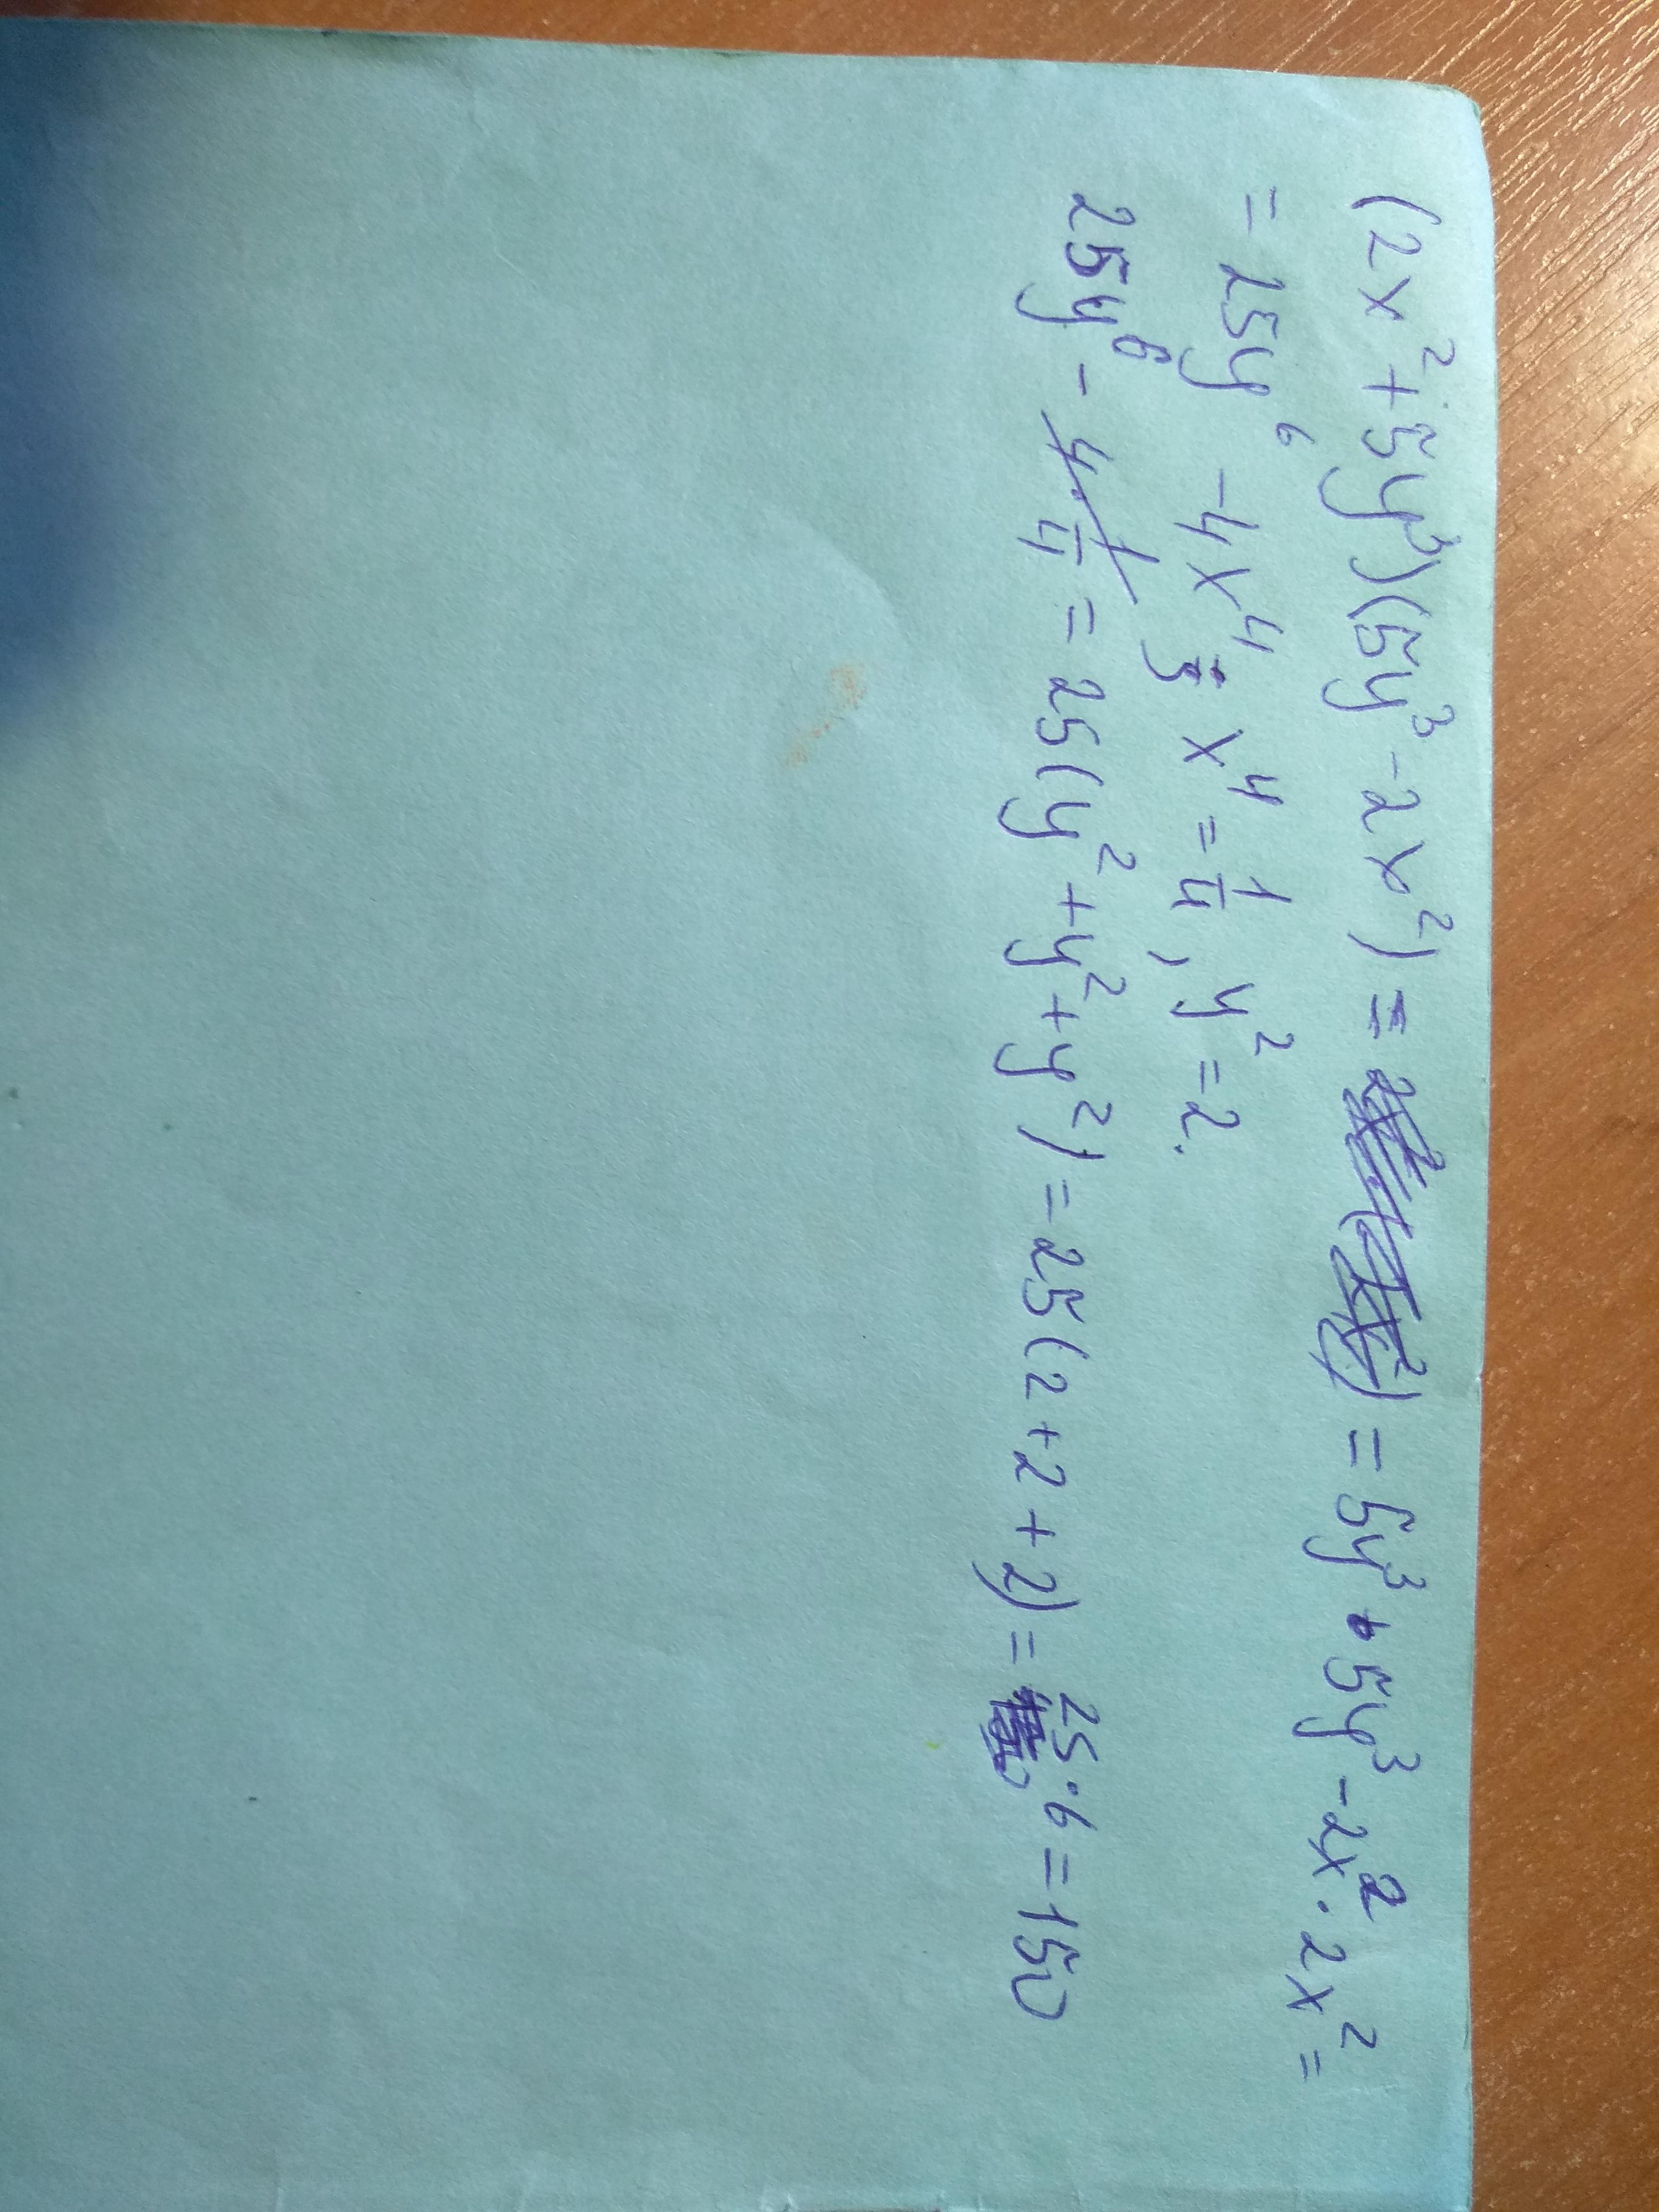 (2x²+5y³)(5y³-2x²)= = 5y³·5y³-2x²·2x²=
= 25y⁶ -4x⁴; x⁴=1/4, y²=2.
25y⁶ - 4·1/4 = 25(y²+y²+y²)=25(2+2+2)= 25·6=150